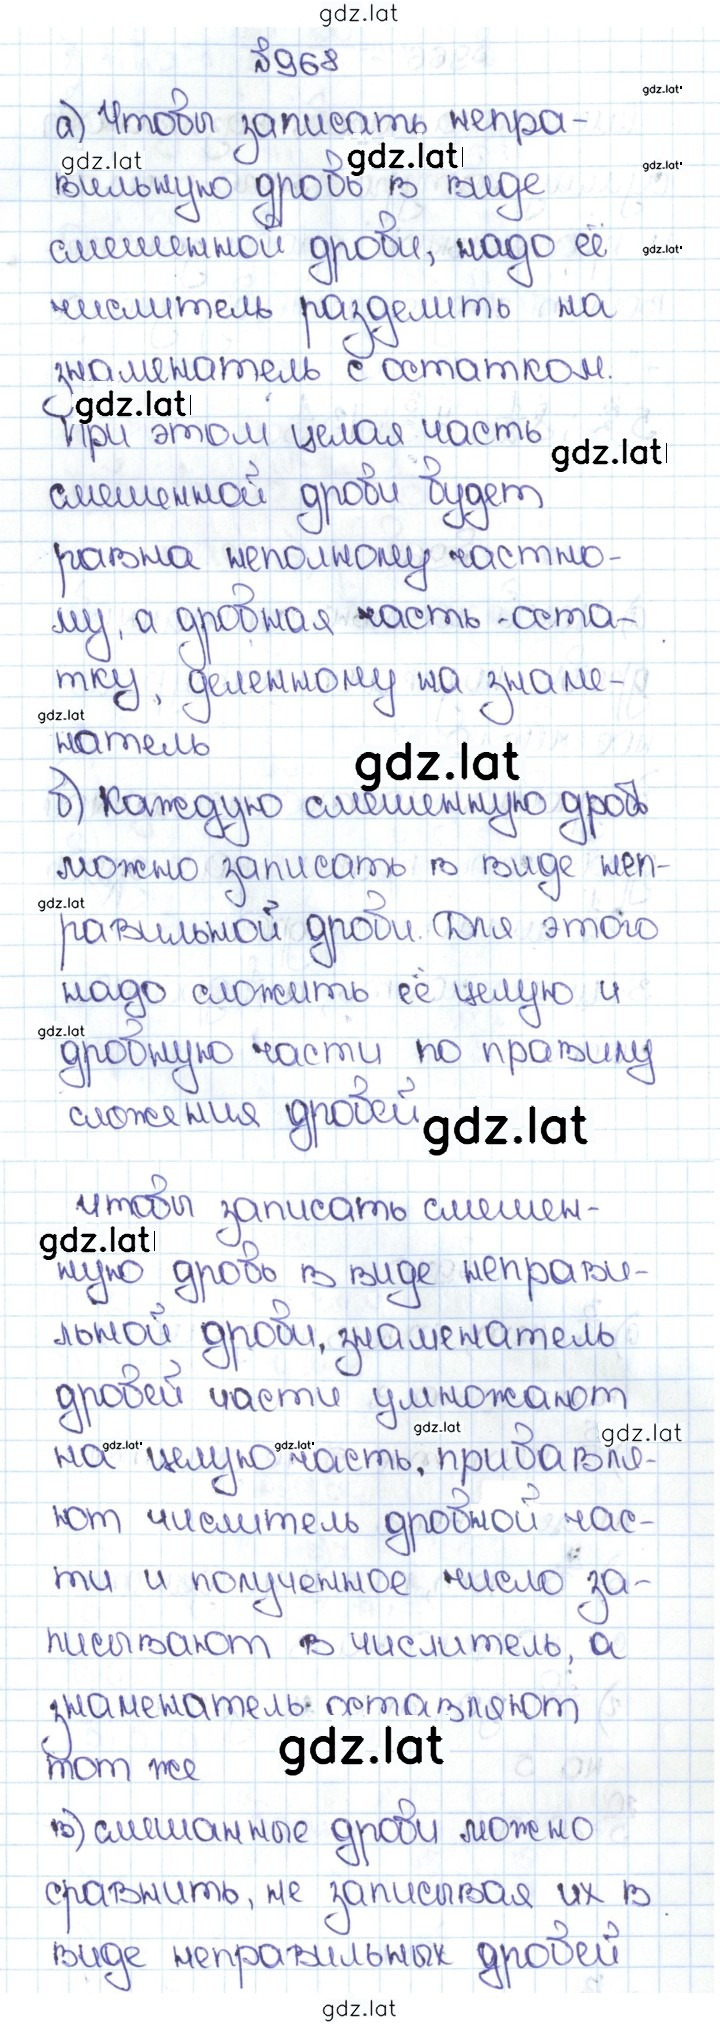 gdz.lat
№968
gdz.lat
а) Чтобы записать непра-
gdz.lat gdz.lat gdz.lat
вильную дробь в виде
смешенной дроби, надо её
gdz.lat
числитель разделить на
знаменатель с остатком.
gdz.lat
При этом целая часть
gdz.lat
смешенной дроби будет
равна неполному частно-
му, а дробная часть - оста-
тку, деленному на знаме-
gdz.lat
натель
gdz.lat
б) Каждую смешенную дробь
можно записать в виде неп-
gdz.lat
равильной дроби. Для этого
надо сложить её целую и
gdz.lat
дробную части по правилу
сложения дробей
gdz.lat
чтобы записать смешен-
gdz.lat
ную дробь в виде неправи-
льной дроби, знаменатель
дробей части умножают
gdz.lat gdz.lat
на целую часть, прибавля-
gdz.lat gdz.lat
ют числитель дробной час-
ти и полученное число за-
писывают в числитель, а
знаменатель оставляют
gdz.lat
тот же
в) смешанные дроби можно
сравнить, не записывая их в
виде неправильных дробей
gdz.lat